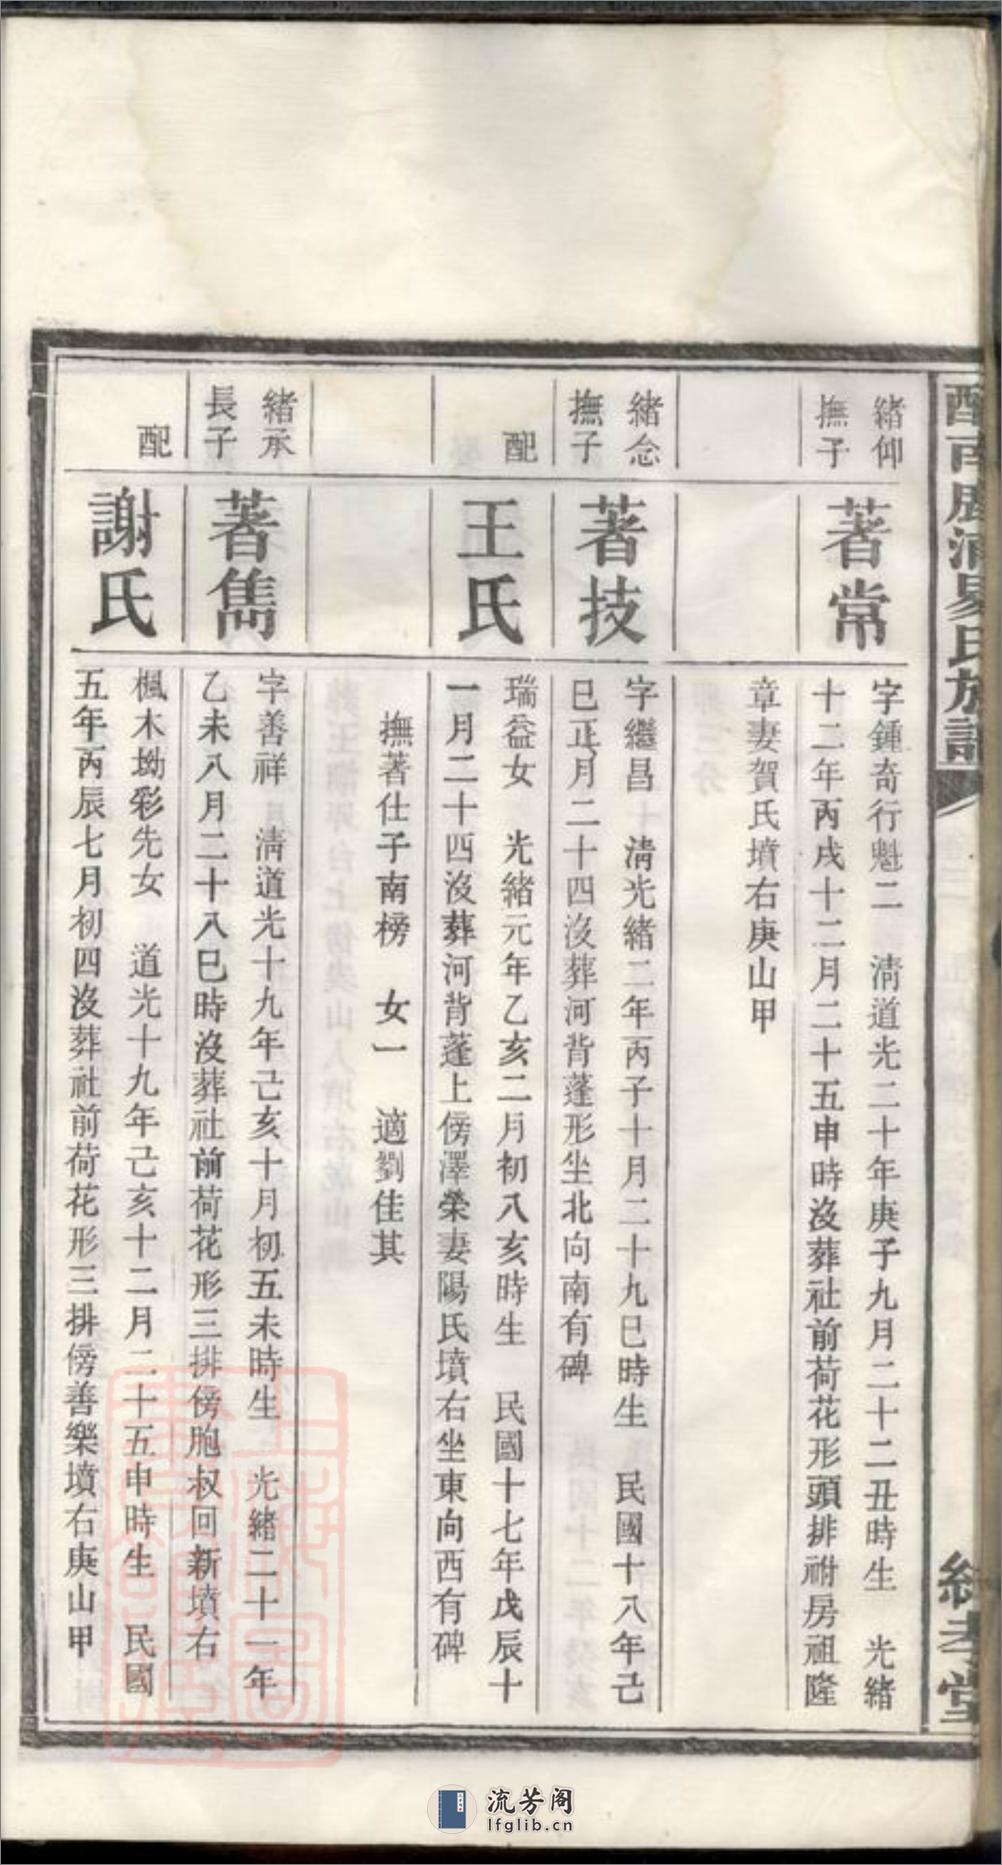 醴南
易氏族譜
緒仰
撫子
著常
字鍾奇行魁二 淸道光二十年庚子九月二十二丑時生 光緒
十二年丙戌十二月二十五申時沒葬社前荷花形頭排祔房祖隆
章妻賀氏墳右庚山甲
緒念
撫子
著技
字繼昌 淸光緒二年丙子十月二十九巳時生 民國十八年己
巳正月二十四沒葬河背蓬形坐北向南有碑
配
王氏
瑞益女 光緒元年乙亥二月初八亥時生 民國十七年戊辰十
一月二十四沒葬河背蓬上傍澤榮妻陽氏墳右坐東向西有碑
撫著仕子南榜 女一 適劉佳其
緒承
長子
著雋
字善祥 淸道光十九年己亥十月初五未時生 光緒二十一年
乙未八月二十八巳時沒葬社前荷花形三排傍胞叔回新墳右
配
謝氏
楓木坳彩先女 道光十九年己亥十二月二十五申時生 民國
五年丙辰七月初四沒葬社前荷花形三排傍善樂墳右庚山甲
孝堂
流芳阁
lfglib.cn